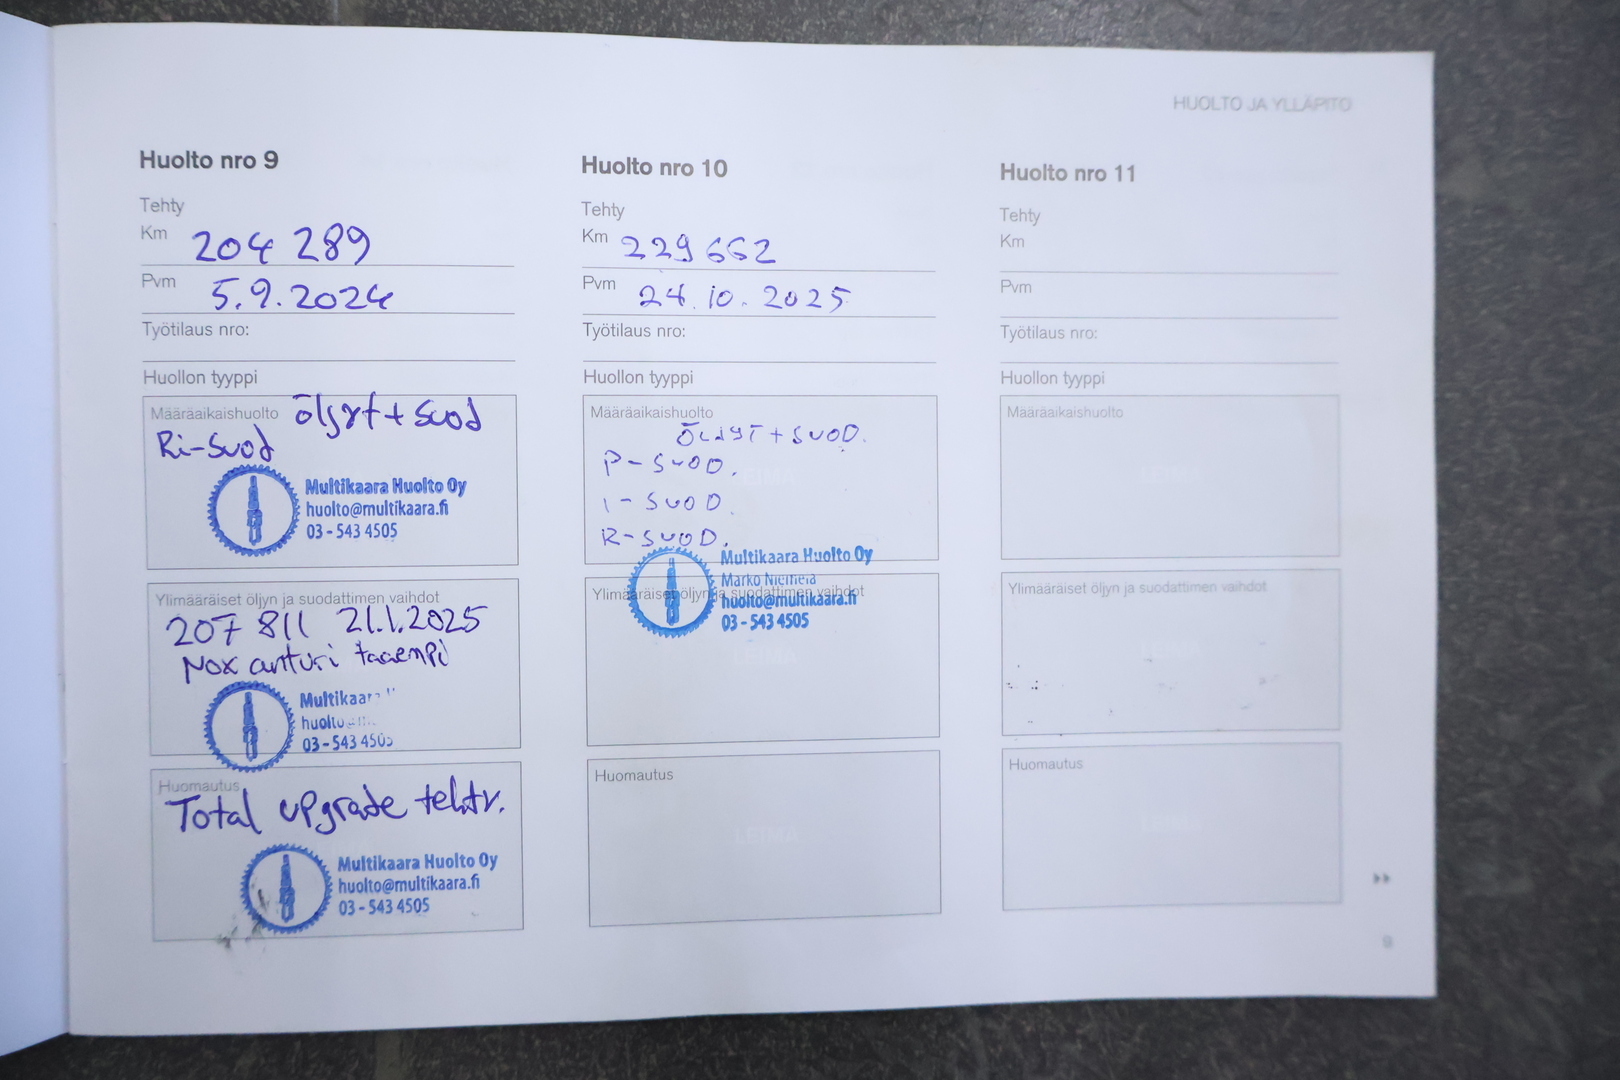 HUOLTO JA YLLÄPITO
Huolto nro 9
Tehty
Km 204 289
Pvm 5.9.2024
Työtilaus nro:
Huollon tyyppi
Määräaikaishuolto öljyt + suod
Ri-suod
Multikaara Huolto Oy
huolto@multikaara.fi
03 - 543 4505
Ylimääräiset öljyn ja suodattimen vaihdot
207 811 21.1.2025
Nox anturi taaempi
Multikaar
huolto
03 - 543 4505
Huomautus
Total upgrade tehty.
Multikaara Huolto Oy
huolto@multikaara.fi
03 - 543 4505
Huolto nro 10
Tehty
Km 229 662
Pvm 24.10.2025
Työtilaus nro:
Huollon tyyppi
Määräaikaishuolto
ÖLJYT + SUOD.
P-SUOD.
I-SUOD.
R-SUOD.
LEIMA
Multikaara Huolto Oy
Marko Niemelä
huolto@multikaara.fi
03 - 543 4505
Ylimääräiset öljyn ja suodattimen vaihdot
LEIMA
Huomautus
LEIMA
Huolto nro 11
Tehty
Km
Pvm
Työtilaus nro:
Huollon tyyppi
Määräaikaishuolto
LEIMA
Ylimääräiset öljyn ja suodattimen vaihdot
LEIMA
Huomautus
LEIMA
9